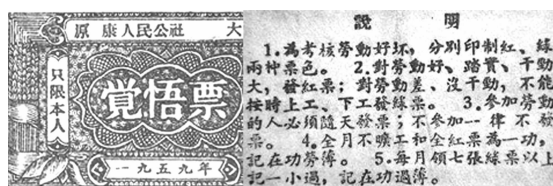 原康人民公社 大
只限本人
覚悟票
一九五九年
說 明
1.為考核勞動好坏，分别印制紅、綠
兩种票色。 2.對勞動好、踏實、干勁
大，發紅票；對勞動差、沒干勁，不能
按時上工、下工發綠票。 3.參加勞動
的人必須隨天發票；不參加一律不發
票。 4.全月不曠工和全紅票為一功，
記在功勞簿。 5.每月領七張綠票以上
記一小過，記在功過薄。